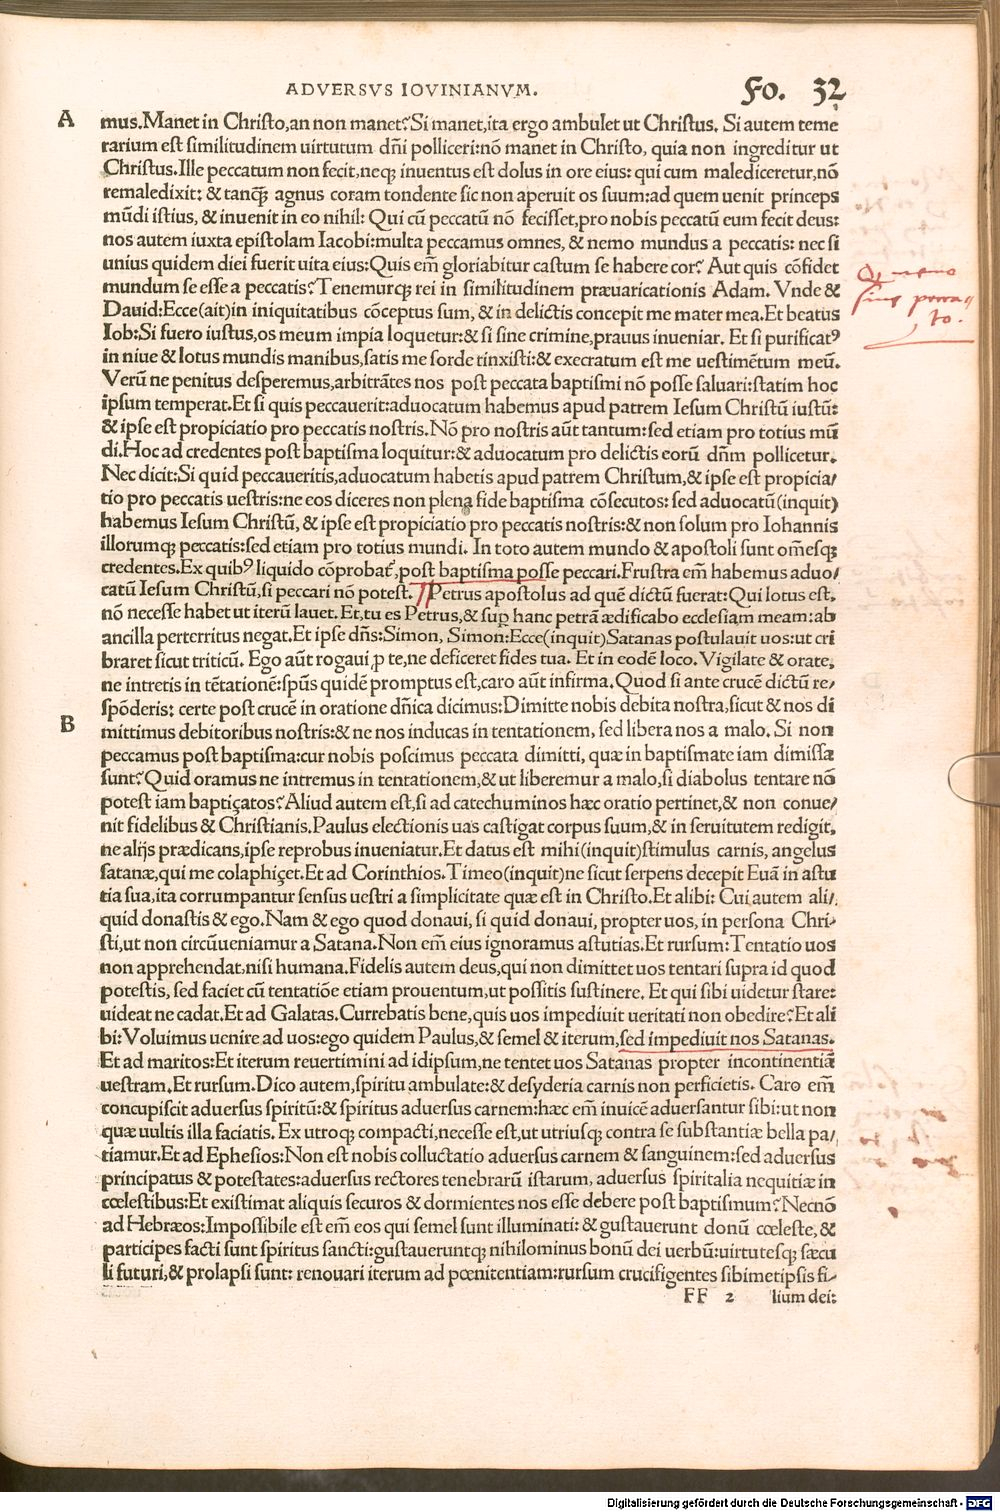 ADVERSVS IOVINIANVM. Fo. 32
A
mus.Manet in Christo,an non manet?Si manet,ita ergo ambulet ut Christus. Si autem teme
rarium est similitudinem uirtutum dñi polliceri:nō manet in Christo, quia non ingreditur ut
Christus.Ille peccatum non fecit,neq; inuentus est dolus in ore eius: qui cum malediceretur,nō
remaledixit: & tanq̃; agnus coram tondente sic non aperuit os suum:ad quem uenit princeps
mūdi istius, & inuenit in eo nihil: Qui cū peccatū nō fecisset,pro nobis peccatū eum fecit deus:
nos autem iuxta epistolam Iacobi:multa peccamus omnes, & nemo mundus a peccatis: nec si
unius quidem diei fuerit uita eius:Quis em̄ gloriabitur castum se habere cor? Aut quis cōfidet
mundum se esse a peccatis?Tenemurq; rei in similitudinem præuaricationis Adam. Vnde &
Dauid:Ecce(ait)in iniquitatibus cōceptus sum, & in delictis concepit me mater mea.Et beatus
Iob:Si fuero iustus,os meum impia loquetur:& si sine crimine,prauus inueniar. Et si purificatꝰ
in niue & lotus mundis manibus,satis me sorde tinxisti:& execratum est me uestimētum meū.
Verū ne penitus desperemus,arbitrātes nos post peccata baptismi nō posse saluari:statim hoc
ipsum temperat.Et si quis peccauerit:aduocatum habemus apud patrem Iesum Christū iustū:
& ipse est propiciatio pro peccatis nostris.Nō pro nostris aūt tantum:sed etiam pro totius mū
di.Hoc ad credentes post baptisma loquitur:& aduocatum pro delictis eorū dñm pollicetur.
Nec dicit:Si quid peccaueritis,aduocatum habetis apud patrem Christum,& ipse est propicia/
tio pro peccatis uestris:ne eos diceres non plena fide baptisma cōsecutos: sed aduocatū(inquit)
habemus Iesum Christū, & ipse est propiciatio pro peccatis nostris:& non solum pro Iohannis
illorumq; peccatis:sed etiam pro totius mundi. In toto autem mundo & apostoli sunt om̄esq;
credentes.Ex quibꝰ liquido cōprobať,post baptisma posse peccari.Frustra em̄ habemus aduo/
catū Iesum Christū,si peccari nō potest. Petrus apostolus ad quē dictū fuerat:Qui lotus est,
nō necesse habet ut iterū lauet. Et,tu es Petrus,& sup hanc petrā ædificabo ecclesiam meam:ab
ancilla perterritus negat.Et ipse dñs:Simon, Simon:Ecce(inquit)Satanas postulauit uos:ut cri
braret sicut triticū. Ego aūt rogaui ꝓ te,ne deficeret fides tua. Et in eodē loco. Vigilate & orate,
ne intretis in tētationē:spūs quidē promptus est,caro aūt infirma.Quod si ante crucē dictū re/
spōderis: certe post crucē in oratione dñica dicimus:Dimitte nobis debita nostra,sicut & nos di
B
mittimus debitoribus nostris:& ne nos inducas in tentationem, sed libera nos a malo. Si non
peccamus post baptisma:cur nobis poscimus peccata dimitti, quæ in baptismate iam dimissa
sunt?Quid oramus ne intremus in tentationem,& ut liberemur a malo,si diabolus tentare nō
potest iam baptiçatos?Aliud autem est,si ad catechuminos hæc oratio pertinet,& non conue/
nit fidelibus & Christianis.Paulus electionis uas castigat corpus suum,& in seruitutem redigit,
ne alijs prædicans,ipse reprobus inueniatur.Et datus est mihi(inquit)stimulus carnis, angelus
satanæ,qui me colaphiçet.Et ad Corinthios.Timeo(inquit)ne sicut serpens decepit Euā in astu
tia sua,ita corrumpantur sensus uestri a simplicitate quæ est in Christo.Et alibi: Cui autem ali/
quid donastis & ego.Nam & ego quod donaui, si quid donaui, propter uos, in persona Chri/
sti,ut non circūueniamur a Satana.Non em̄ eius ignoramus astutias.Et rursum:Tentatio uos
non apprehendat,nisi humana.Fidelis autem deus,qui non dimittet uos tentari supra id quod
potestis, sed faciet cū tentatiōe etiam prouentum,ut possitis sustinere. Et qui sibi uidetur stare:
uideat ne cadat.Et ad Galatas.Currebatis bene,quis uos impediuit ueritati non obedire?Et ali
bi:Voluimus uenire ad uos:ego quidem Paulus,& semel & iterum,sed impediuit nos Satanas.
Et ad maritos:Et iterum reuertimini ad idipsum,ne tentet uos Satanas propter incontinentiā
uestram.Et rursum.Dico autem,spiritu ambulate:& desyderia carnis non perficietis. Caro em̄
concupiscit aduersus spiritū:& spiritus aduersus carnem:hæc em̄ inuicē aduersantur sibi:ut non
quæ uultis illa faciatis. Ex utroq; compacti,necesse est,ut utriusq; contra se substantiæ bella pa/
tiamur.Et ad Ephesios:Non est nobis colluctatio aduersus carnem & sanguinem:sed aduersus
principatus & potestates:aduersus rectores tenebrarū istarum, aduersus spiritalia nequitiæ in
cœlestibus:Et existimat aliquis securos & dormientes nos esse debere post baptismum?Necnō
ad Hebræos:Impossibile est em̄ eos qui semel sunt illuminati: & gustauerunt donū cœleste, &
participes facti sunt spiritus sancti:gustaueruntq; nihilominus bonū dei uerbū:uirtutesq; sæcu
li futuri,& prolapsi sunt: renouari iterum ad pœnitentiam:rursum crucifigentes sibimetipsis fi/
FF 2 lium dei:
Digitalisierung gefördert durch die Deutsche Forschungsgemeinschaft - DFG